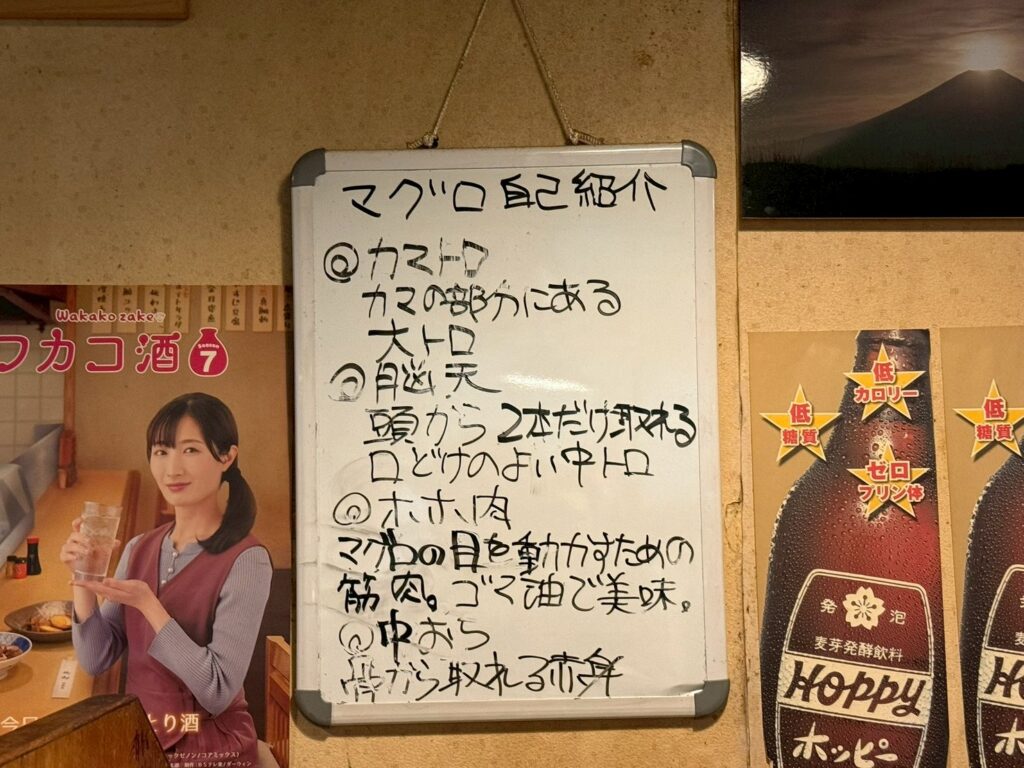 マグロ自己紹介
◎カマトロ
カマの部分にある
大トロ
◎脳天
頭から2本だけ取れる
口どけのよい中トロ
◎ホホ肉
マグロの目を動かすための
筋肉。ゴマ油で美味。
◎中おち
骨から取れる赤身
Wakako zake
ワカコ酒
Season
7
とり酒
低
カロリー
低
糖質
ゼロ
プリン体
発泡
麦芽発酵飲料
HOPPY
ホッピー
低
糖質